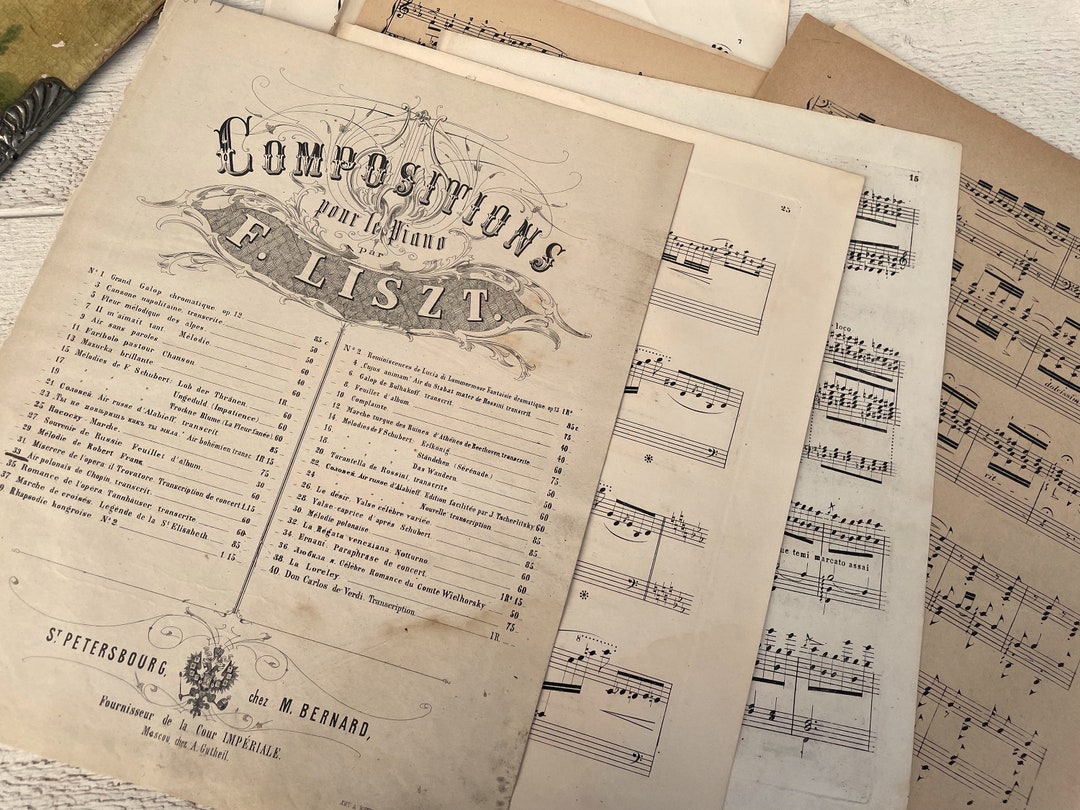 COMPOSITIONS
pour le Piano
par
F. LISZT.
Nº 1 Grand Galop chromatique op. 12 85 c
3 Canzone napolitaine transcrite 50
5 Fleur mélodique des alpes 50
7 Il m'aimait tant. Mélodie. 40
9 Air sans paroles 60
11 Faribolo pastour Chanson 60
13 Mazurka brillante
15 Mélodies de F. Schubert: Lob der Thränen. 1R.
17 Ungeduld (Impatience) 60
19 Trockne Blume (La Fleur fanée) 60
21 Соловей. Air russe d'Alabieff transcrit
23 „Ты не повѣришь какъ ты мила" Air bohémien transc. 1R 15
25 Racoczy Marche. 75
27 Souvenir de Russie. Feuillet d'album.
29 Mélodie de Robert Franz
31 Miserere de l'opéra il Trovatore Transcription de concert 1.15
33 Air polonais de Chopin, transcrit. 60
35 Romance de l'opéra Tannhäuser, transcrite 60
37 Marche de croisés. Legende de la Ste Elisabeth 85
9 Rhapsodie hongroise Nº 2 1 15
Nº 2 Reminiscences de Lucia di Lammermoor Fantaisie dramatique op 13 1R
4 „Cujus animam" Air du Stabat mater de Rossini transcrit. 85 c
6 Galop de Bulhakoff transcrit.
8 Feuillet d'album
10 Complainte
12 Marche turque des Ruines d'Athènes de Beethoven, transcrite
14 Mélodies de F. Schubert: Erlkönig
16 Ständchen (Sérénade.)
18 Das Wandern.
20 Tarantella de Rossini, transcrite
22 Соловей Air russe d'Alabieff Edition facilitée par J. Tscherlitzky 60
24 Nouvelle transcription 60
26 Le désir. Valse célèbre variée 85
28 Valse-caprice d'après Schubert. 85
30 Mélodie polonaise
32 La Régata veneziana Notturno 60
34 Ernani. Paraphrase de concert.
36 Любила я. Célèbre Romance du Comte Wielhorsky
38 La Loreley
40 Don Carlos de Verdi. Transcription 1R.
ST PETERSBOURG,
chez M. BERNARD,
Fournisseur de la Cour IMPÉRIALE.
Moscou, chez A. Gutheil.
7
25
15
loco
8
temi marcato assai
rit